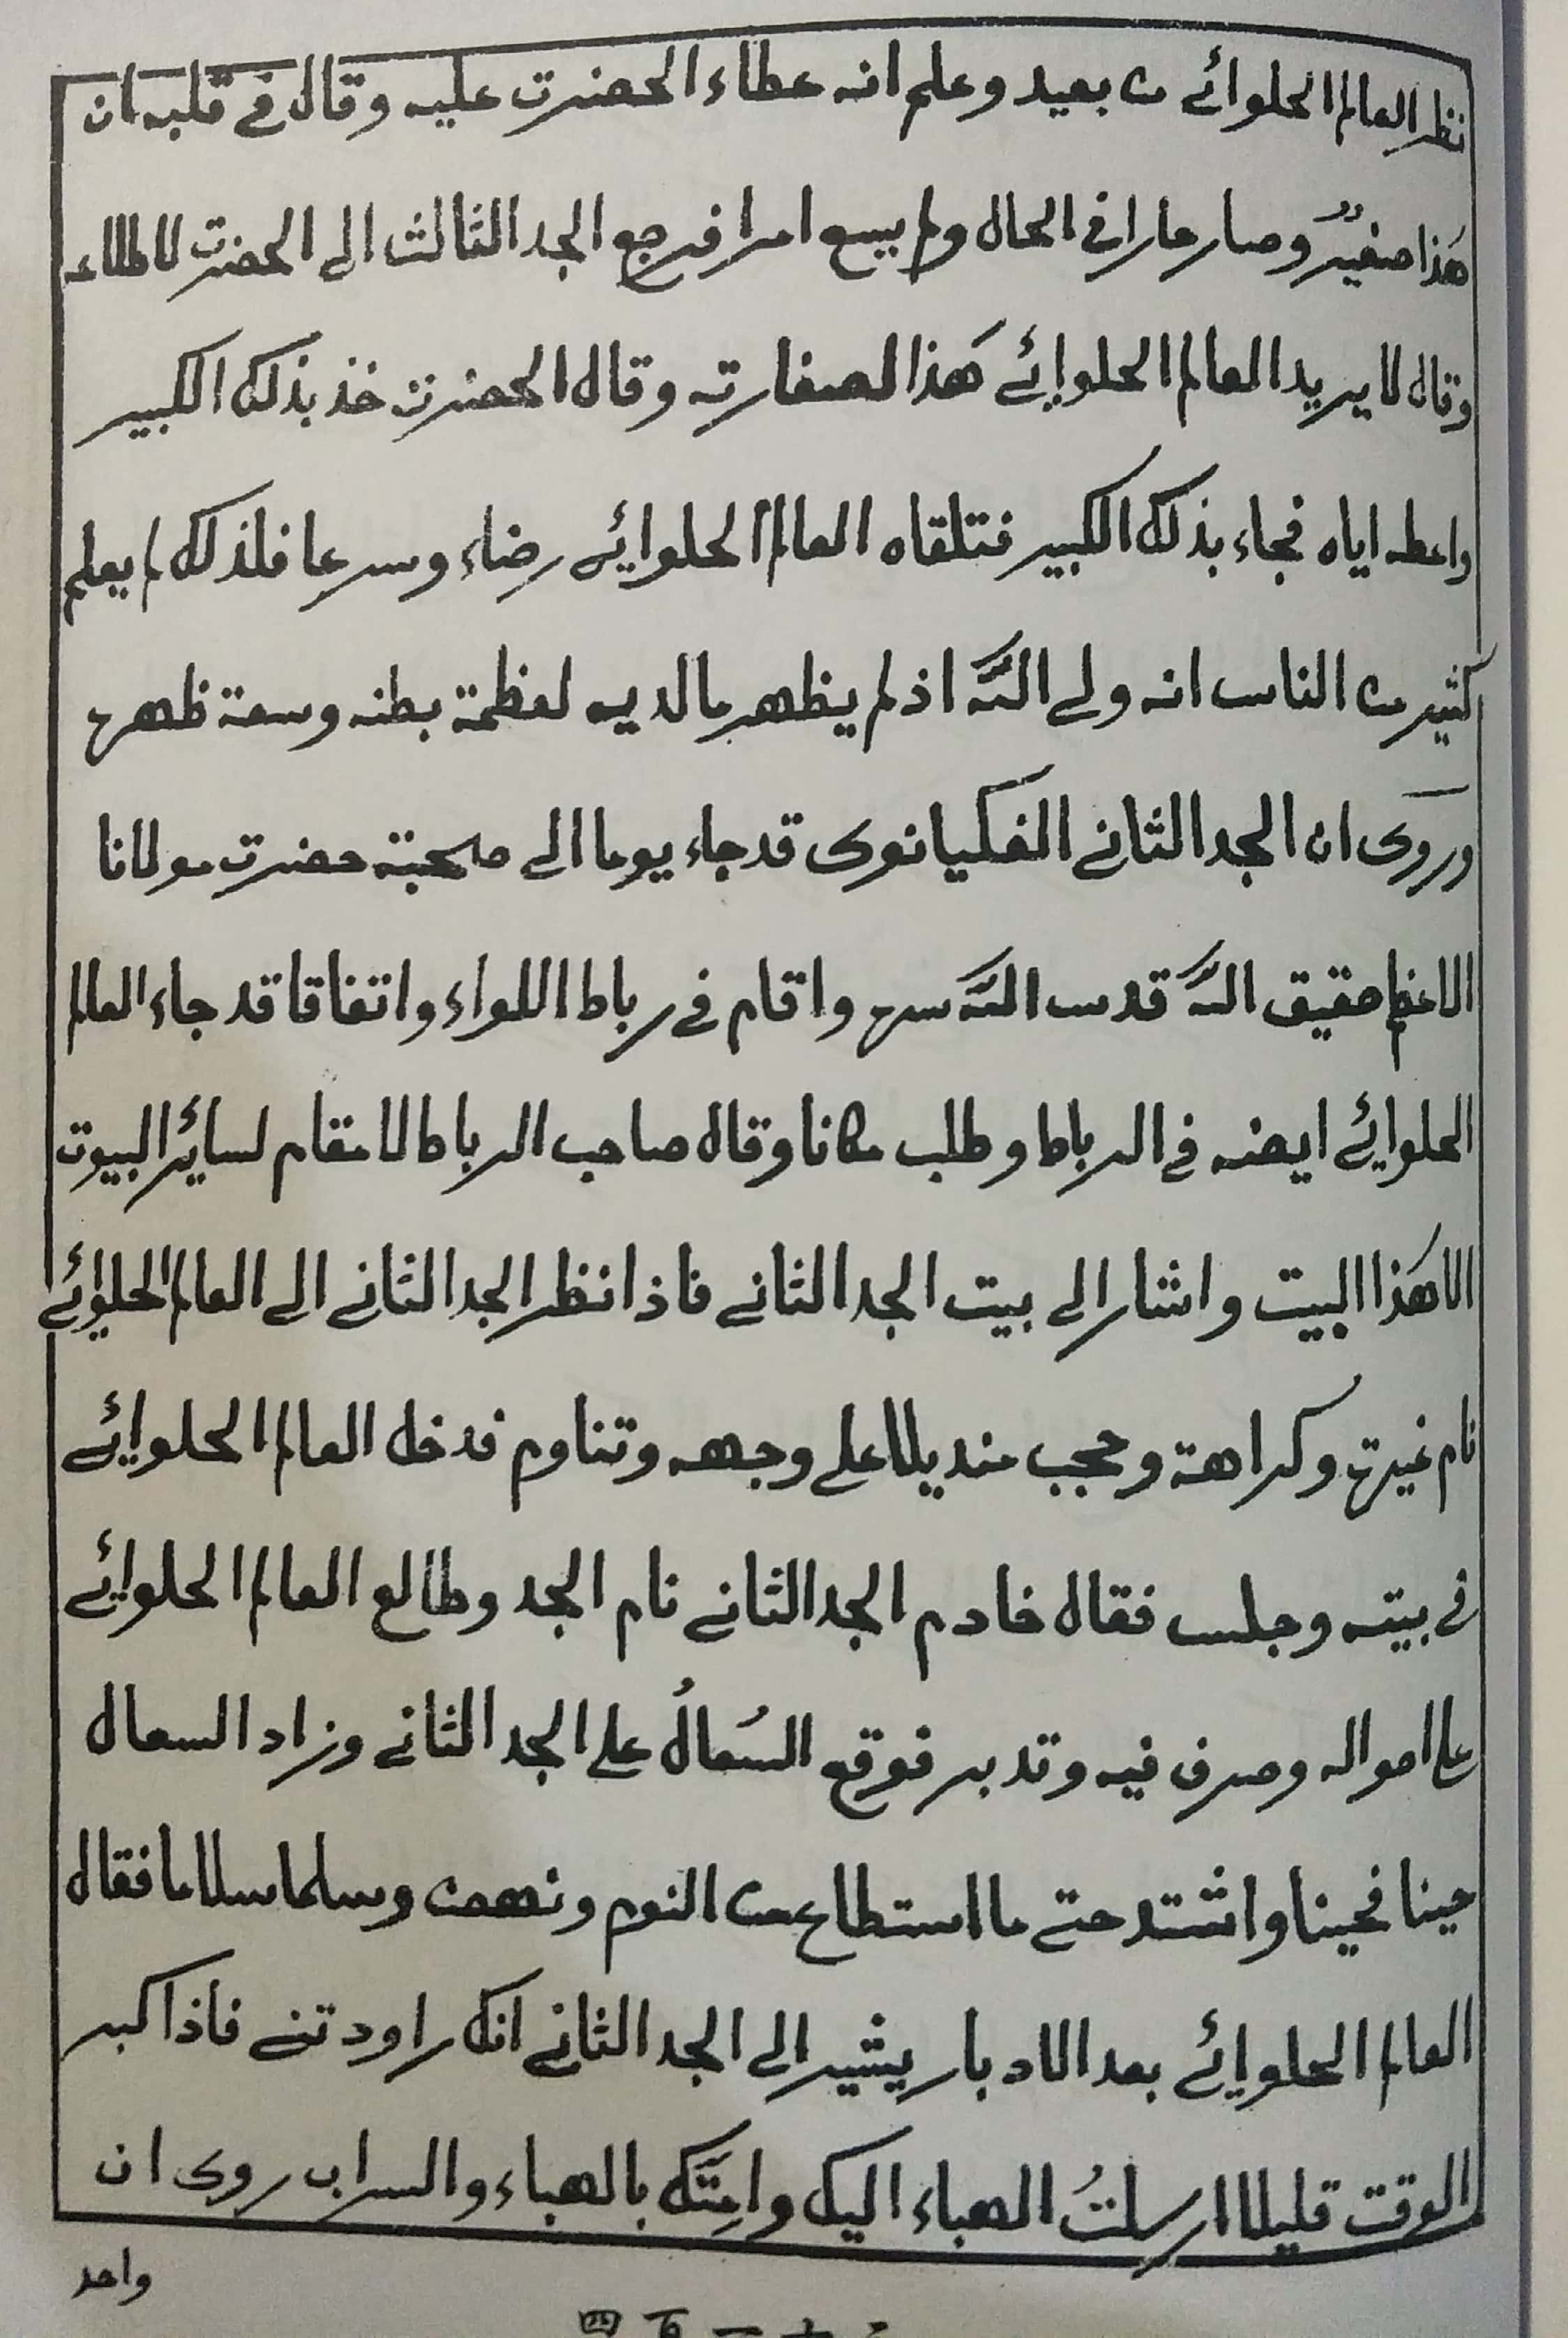 نظر العالم الحلوائے من بعيد وعلم انه عطاء الحضرت عليه وقال في قلبه ان
هَذا صغيرٌ وصار عارا في الحال ولم يبيع امرا فرجع الجد الثالث الى الحضرت لاطلاعه
وقال لا يريد العالم الحلوائے هَذا لصغارته وقال الحضرت خذ بذلك الكبير
واعطه اياه فجاء بذلك الكبير فتلقاه العالم الحلوائے رضاء وسرعا فلذلك لم يعلم
كثير من الناس انه ولى اللّه اذ لم يظهر ما لديه لعظمة بطنه وسعة ظهره
وروى ان الجد الثانے الفكيانوى قد جاء يوما الى صحبة حضرت مولانا
الاعظم حقيق اللّه قدس اللّه سره واقام في رباط اللواء واتفاقا قد جاء العالم
الحلوائے ايضه في الرباط وطلب مكانا وقال صاحب الرباط لا مقام لسائر البيوت
الا هَذا البيت واشار الى بيت الجد الثانے فاذا نظر الجد الثانے الى العالم الحلوائے
نام غيرة وكراهة وحجب منديلا على وجهه وتناوم فدخل العالم الحلوائے
في بيته وجلس فقال خادم الجد الثانے نام الجد وطالع العالم الحلوائے
على امواله وصرف فيه وتدبر فوقع السُعالُ على الجد الثانے وزاد السعال
حينا فحينا واشتد حتے ما استطاع من النوم ونهض وسلما سلاما فقال
العالم الحلوائے بعد الادبار يشير الى الجد الثانے انك راودتنے فاذا كبر
الوقت قليلا ارسلتُ الهباء اليك وامتك بالهباء والسراب روى ان
واحد
四百一十二